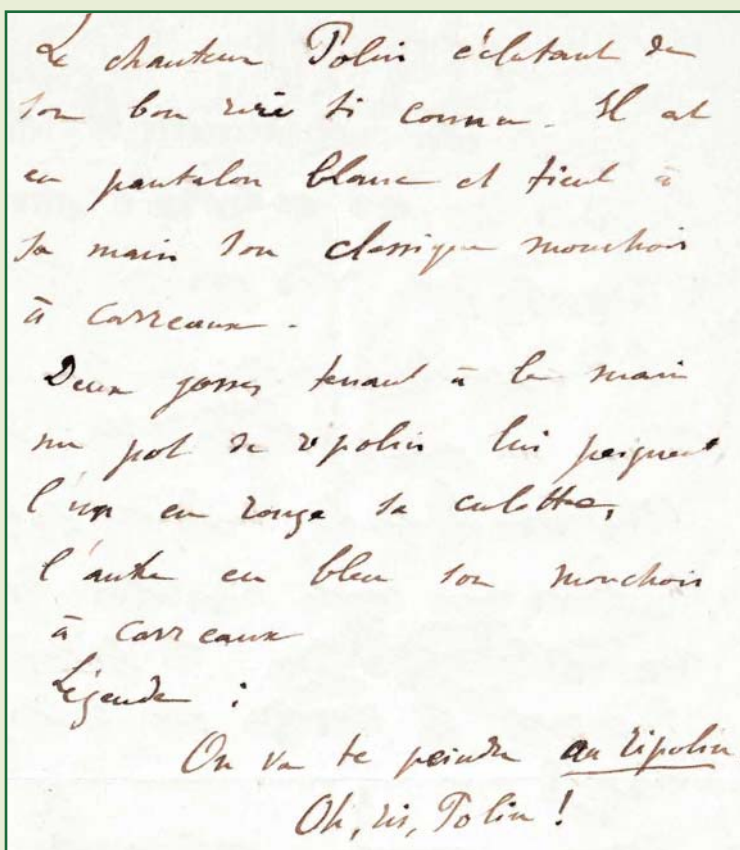 Le chanteur Polin éclatant de
son bon rire si connu. Il est
en pantalon blanc et tient à
sa main son classique mouchoir
à carreaux.
Deux gosses tenant à la main
un pot de ripolin lui peignent
l'un en rouge sa culotte,
l'autre en bleu son mouchoir
à carreaux
Légende :
On va te peindre au ripolin
Oh, ris, Polin !